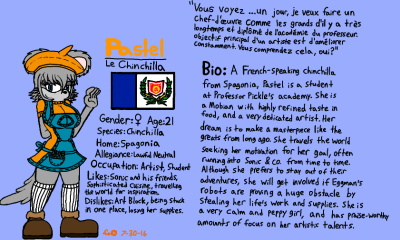 Pastel
Le Chinchilla
Gender:♀ Age:21
Species:Chinchilla
Home:Spagonia
Allegiance:Lawful Neutral
Occupation: Artist, Student
Likes:Sonic and his friends,
Sophisticated Cuisine, travelling
the world for inspiration.
Dislikes: Art Block, being stuck
in one place, losing her supplies.
7-30-16
"Vous voyez ...un jour, je veux faire un
Chef-d'œuvre comme les grands d'il y a très
longtemps et diplômé de l'académie du professeur.
objectif principal d'un artiste est d'améliorer
constamment. Vous comprendez cela, oui?"
Bio: A French-speaking chinchilla
from Spagonia, Pastel is a student
at Professor Pickle's academy. She is
a Mobian with highly refined taste in
food, and a very dedicated artist. Her
dream is to make a masterpiece like the
greats from long ago. She travels the world
seeking her motivation for her goal, often
running into Sonic & Co. from time to time.
Although she prefers to stay out of their
adventures, she will get involved if Eggman's
robots are proving a huge obstacle by
Stealing her life's work and supplies. She is
a very calm and peppy girl, and has praise-worthy
amounts of focus on her artistic talents.